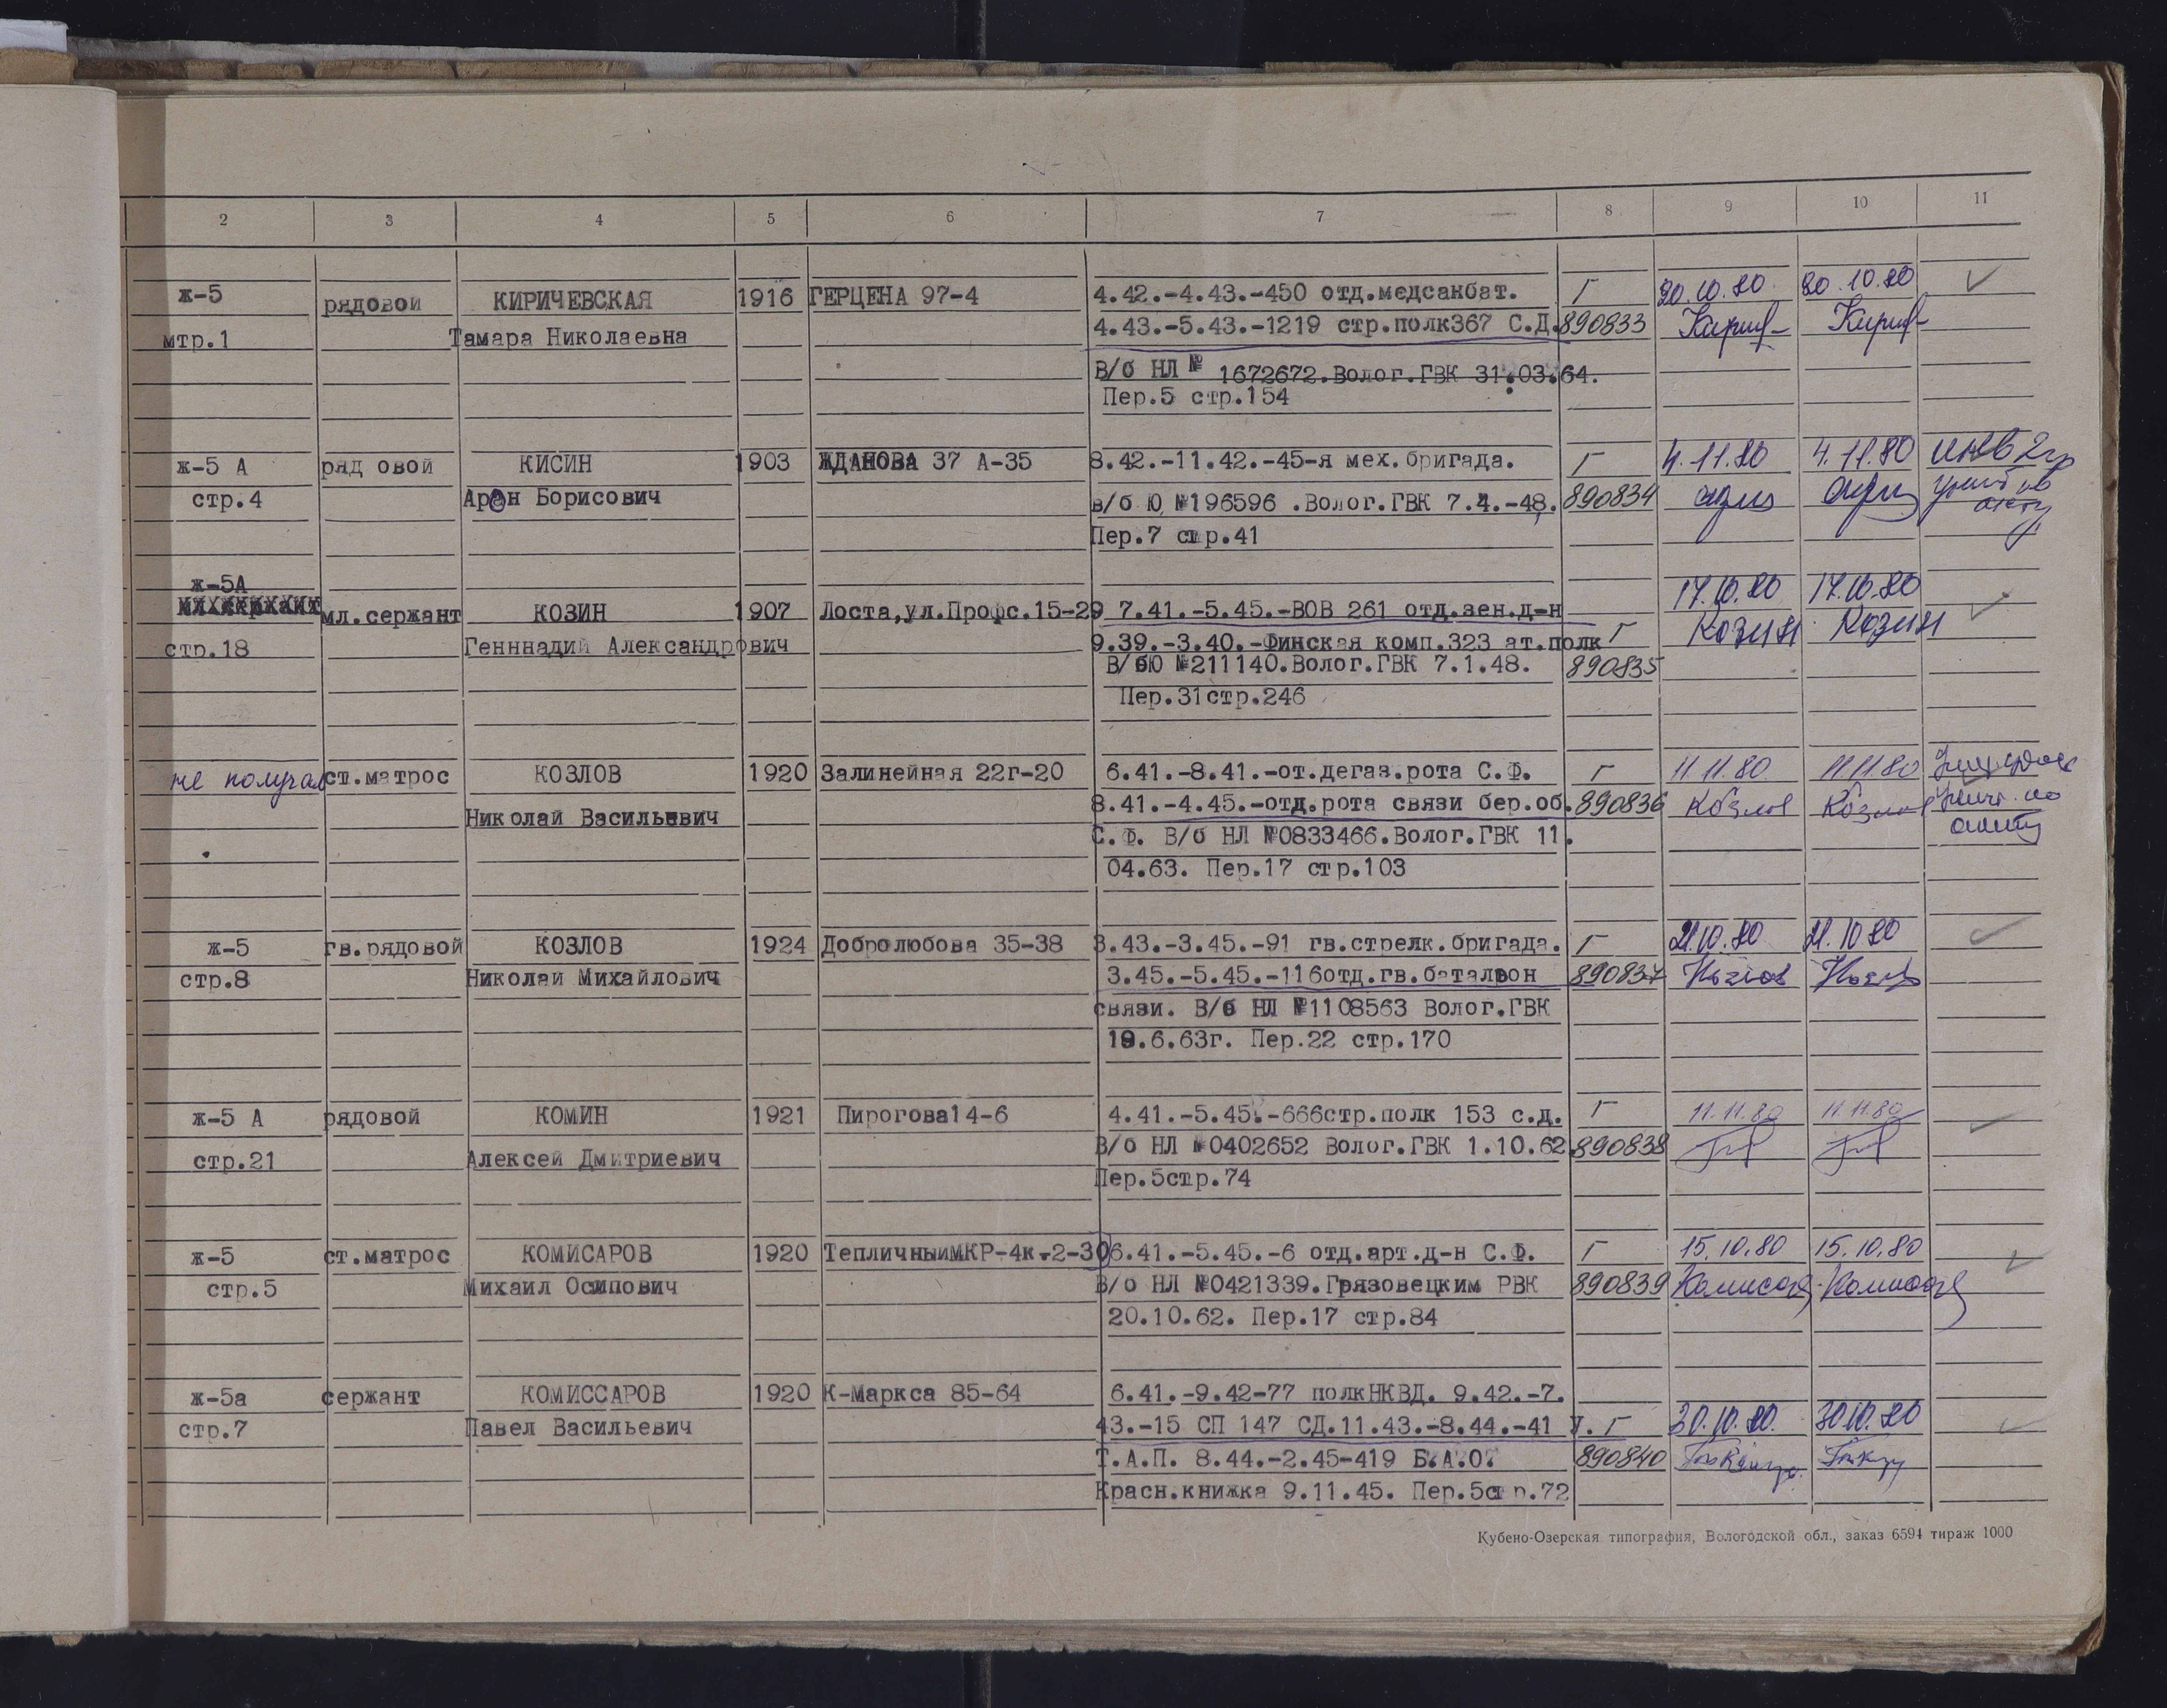 2 3 4 5 6 7 8 9 10 11
ж-5 рядовой КИРИЧЕВСКАЯ 1916 ГЕРЦЕНА 97-4 4.42.-4.43.-450 отд.медсанбат. Г 20.10.80 20.10.80 ✓
мтр.1 Тамара Николаевна 4.43.-5.43.-1219 стр.полк367 С.Д. 890833
В/б НЛ № 1672672.Волог.ГВК 31.03.64.
Пер.5 стр.154
ж-5 А ряд овой КИСИН 1903 ЖДАНОВА 37 А-35 8.42.-11.42.-45-я мех.бригада. Г 4.11.80 4.11.80 инв 2гр
стр.4 Арон Борисович в/б Ю №196596 .Волог.ГВК 7.4.-48. 890834
акту
Пер.7 стр.41
ж-5А 17.10.80 17.10.80
мл.сержант мл.сержант КОЗИН 1907 Лоста,ул.Профс.15-29 7.41.-5.45.-ВОВ 261 отд.зен.д-н Козин Козин ✓
стр.18 Генннадий Александрович 9.39.-3.40.-Финская комп.323 ат.полк Г
В/бЮ №211140.Волог.ГВК 7.1.48. 890835
Пер.31стр.246
не получал ст.матрос КОЗЛОВ 1920 Залинейная 22г-20 6.41.-8.41.-от.дегаз.рота С.Ф. Г 11.11.80 11.11.80
Николай Васильевич 8.41.-4.45.-отд.рота связи бер.об. 890836 Козлов Козлов
С.Ф. В/б НЛ №0833466.Волог.ГВК 11.
04.63. Пер.17 стр.103
ж-5 гв.рядовой КОЗЛОВ 1924 Добролюбова 35-38 3.43.-3.45.-91 гв.стрелк.бригада. Г 21.10.80 21.10 80 ✓
стр.8 Николай Михайлович 3.45.-5.45.-116отд.гв.батальон 890837 Козлов
связи. В/б НЛ №1108563 Волог.ГВК
19.6.63г. Пер.22 стр.170
ж-5 А рядовой КОМИН 1921 Пирогова14-6 4.41.-5.45.-666стр.полк 153 с.д. Г 11.11.80 11.11.80 ✓
стр.21 Алексей Дмитриевич В/б НЛ №0402652 Волог.ГВК 1.10.62 890838
Пер.5стр.74
ж-5 ст.матрос КОМИСАРОВ 1920 ТепличныйМКР-4к.2-30 6.41.-5.45.-6 отд.арт.д-н С.Ф. Г 15.10.80 15.10.80 ✓
стр.5 Михаил Осипович В/б НЛ №0421339.Грязовецким РВК 890839
20.10.62. Пер.17 стр.84
ж-5а сержант КОМИССАРОВ 1920 К-Маркса 85-64 6.41.-9.42-77 полкНКВД. 9.42.-7.
стр.7 Павел Васильевич 43.-15 СП 147 СД.11.43.-8.44.-41 У. Г 30.10.80. 30 10.80 ✓
Т.А.П. 8.44.-2.45-419 Б.А.О. 890840
Красн.книжка 9.11.45. Пер.5стр.72
Кубено-Озерская типография, Вологодской обл., заказ 6594 тираж 1000